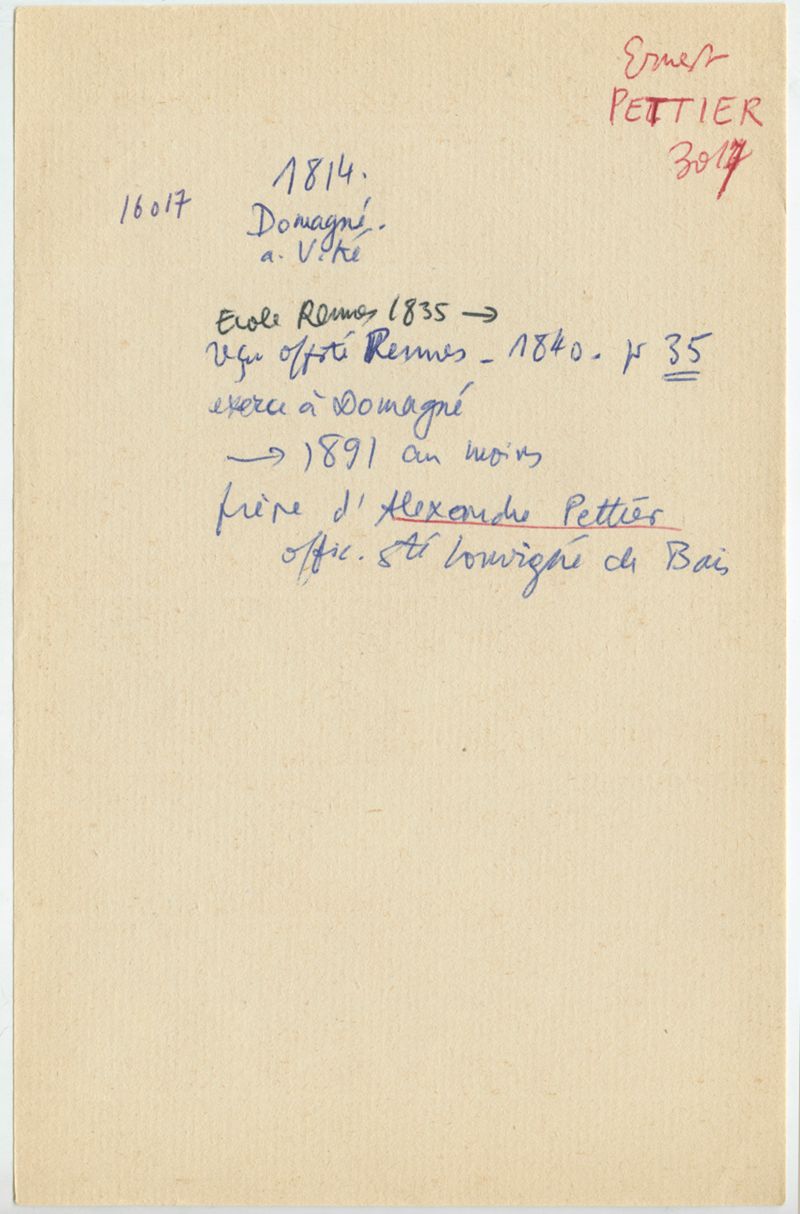 Ernest
PETTIER
3017
1814.
16017
Domagné.
a. Vitré
Ecole Rennes 1835 →
reçu offsté Rennes - 1840. pr 35
exerce à Domagné
→ 1891 au moins
frère d'Alexandre Pettier
offic. sté Louvigné de Bais